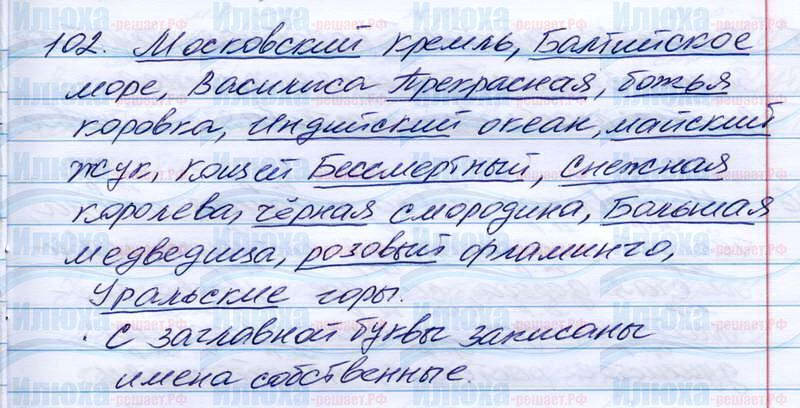 102. Московский кремль, Балтийское
море, Василиса Прекрасная, божья
коровка, Индийский океан, майский
жук, кощей Бессмертный, снежная
королева, чёрная смородина, Большая
медведица, розовый фламинго,
Уральские горы.
· С заглавной буквы записаны
имена собственные.